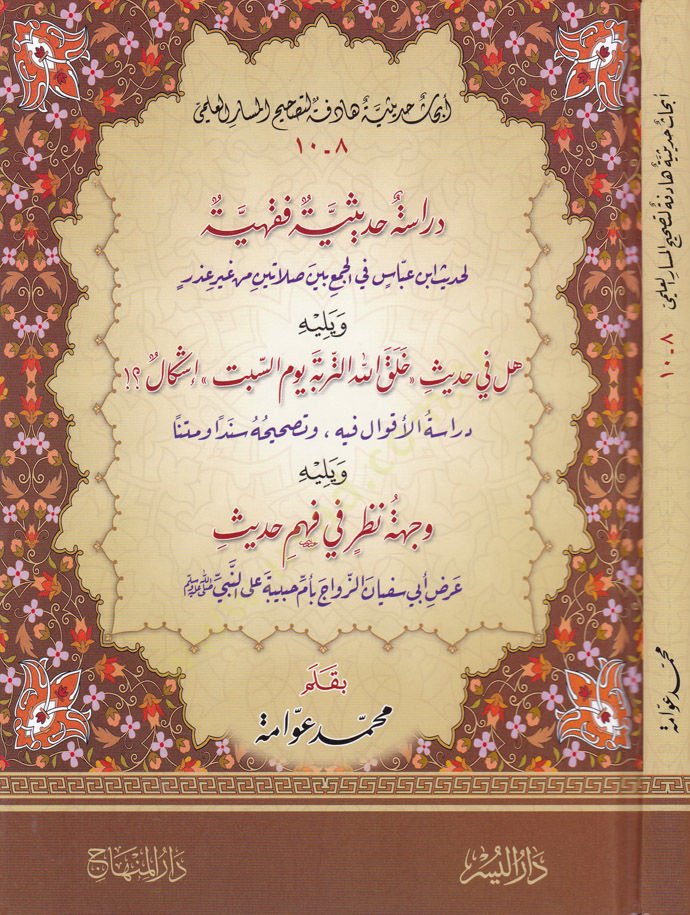 أبحاث حديثيَّة هادفة لتصحيح المسار العلمي
٨ - ١٠
دراسةٌ حديثيَّةٌ فقهيَّةٌ
لحديث ابن عبّاس في الجمع بين صلاتين من غير عذر
وَيَليْهِ
هل في حديثِ «خَلَقَ اللهُ التّربةَ يوم السّبت» إشكالٌ؟!
دراسةُ الأقوال فيه، وتصحيحُهُ سندًا ومتنًا
وَيَليْهِ
وجهةُ نظرٍ في فهمِ حديثِ
عَرض أبي سفيان الزّواجَ بأمِّ حبيبة على النّبيّ ﷺ
بقَلَم
محمّد عوّامة
دَارُ اليُسْر
دَارُ المِنْهَاج
أبحاث حديثية هادفة لتصحيح المسار العلمي
٨ - ١٠
محمّد عوّامة